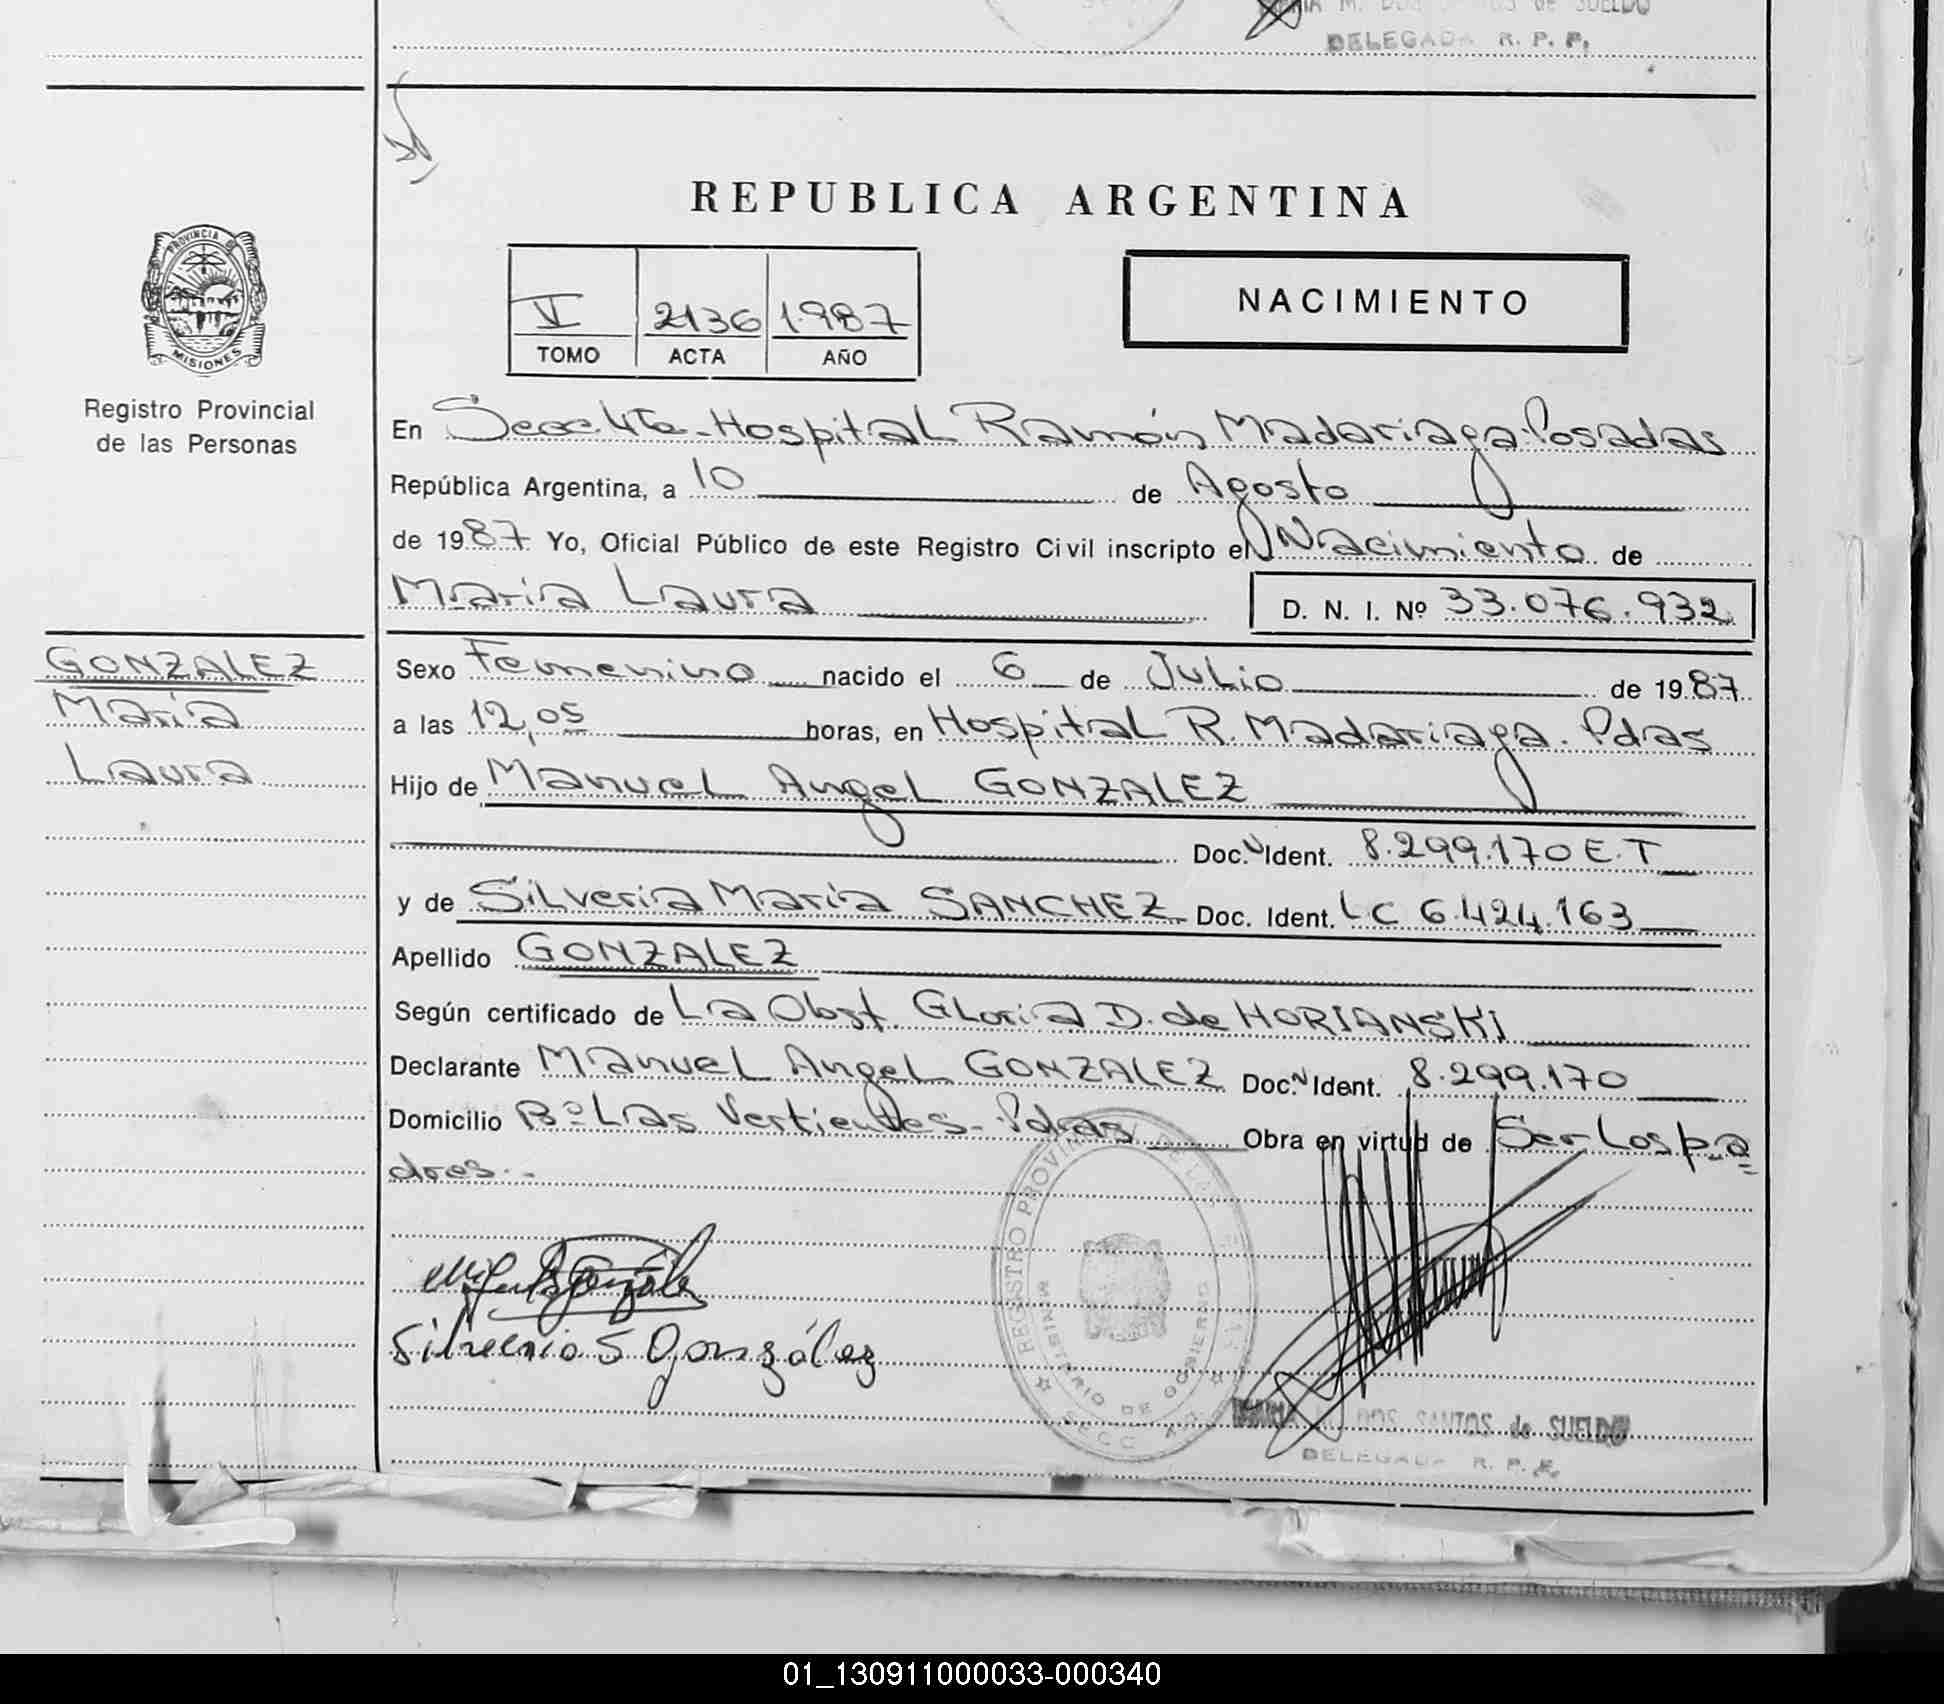 DELEGADA R. P. P.
REPUBLICA ARGENTINA
PROVINCIA DE
MISIONES
Registro Provincial
de las Personas
V 2136 1.987
TOMO ACTA AÑO
NACIMIENTO
En Secc. 4ta - Hospital Ramón Madariaga. Posadas
República Argentina, a 10 de Agosto
de 1987 Yo, Oficial Público de este Registro Civil inscripto el Nacimiento de
Maria Laura
D. N. I. Nº 33.076.932
GONZALEZ
Maria
Laura
Sexo Femenino nacido el 6 de Julio de 1987
a las 12,05 horas, en Hospital R. Madariaga. Pdas
Hijo de Manuel Angel GONZALEZ
Doc. Ident. 8.299.170 E.T
y de Silveria Maria SANCHEZ Doc. Ident. LC 6.424.163
Apellido GONZALEZ
Según certificado de La Obst. Gloria D. de HORIANSKI
Declarante Manuel Angel GONZALEZ Doc. Ident. 8.299.170
Domicilio Bº Las Vertientes - Pdas Obra en virtud de Ser Los pa
dres. -
REGISTRO PROVINCIAL DE LAS
MINISTERIO DE GOBIERNO
SECC.
González
DOS SANTOS de SUELDO
DELEGADA R. P. P.
01_130911000033-000340